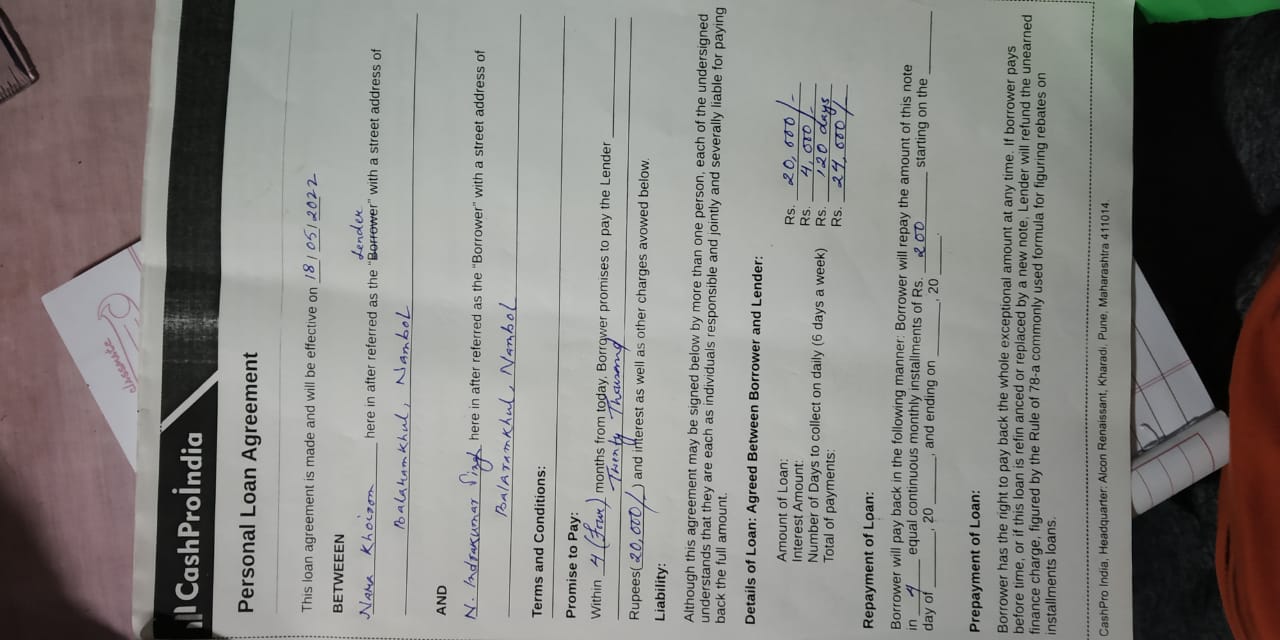 CashProIndia
Personal Loan Agreement
This loan agreement is made and will be effective on 18/05/2022
BETWEEEN
Lender
Nana Khoirom here in after referred as the "Borrower" with a street address of
Balaramkhul, Nambol
AND
N. Indrakumar Singh here in after referred as the "Borrower" with a street address of
Balaramkhul, Nambol
Terms and Conditions:
Promise to Pay:
Within 4 (Four) months from today, Borrower promises to pay the Lender
Twenty Thousand
Rupees(20,000/-) and interest as well as other charges avowed below.
Liability:
Although this agreement may be signed below by more than one person, each of the undersigned
understands that they are each as individuals responsible and jointly and severally liable for paying
back the full amount.
Details of Loan: Agreed Between Borrower and Lender:
Amount of Loan: Rs. 20,000/-
Interest Amount: Rs. 4,000/-
Number of Days to collect on daily (6 days a week) Rs. 120 days
Total of payments: Rs. 24,000/-
Repayment of Loan:
Borrower will pay back in the following manner: Borrower will repay the amount of this note
in equal continuous monthly installments of Rs. 200 starting on the
day of , 20 , and ending on , 20 .
Prepayment of Loan:
Borrower has the right to pay back the whole exceptional amount at any time. If borrower pays
before time, or if this loan is refin anced or replaced by a new note, Lender will refund the unearned
finance charge, figured by the Rule of 78-a commonly used formula for figuring rebates on
installments loans.
CashPro India, Headquarter: Alcon Renaissant, Kharadi, Pune, Maharashtra 411014
classmate